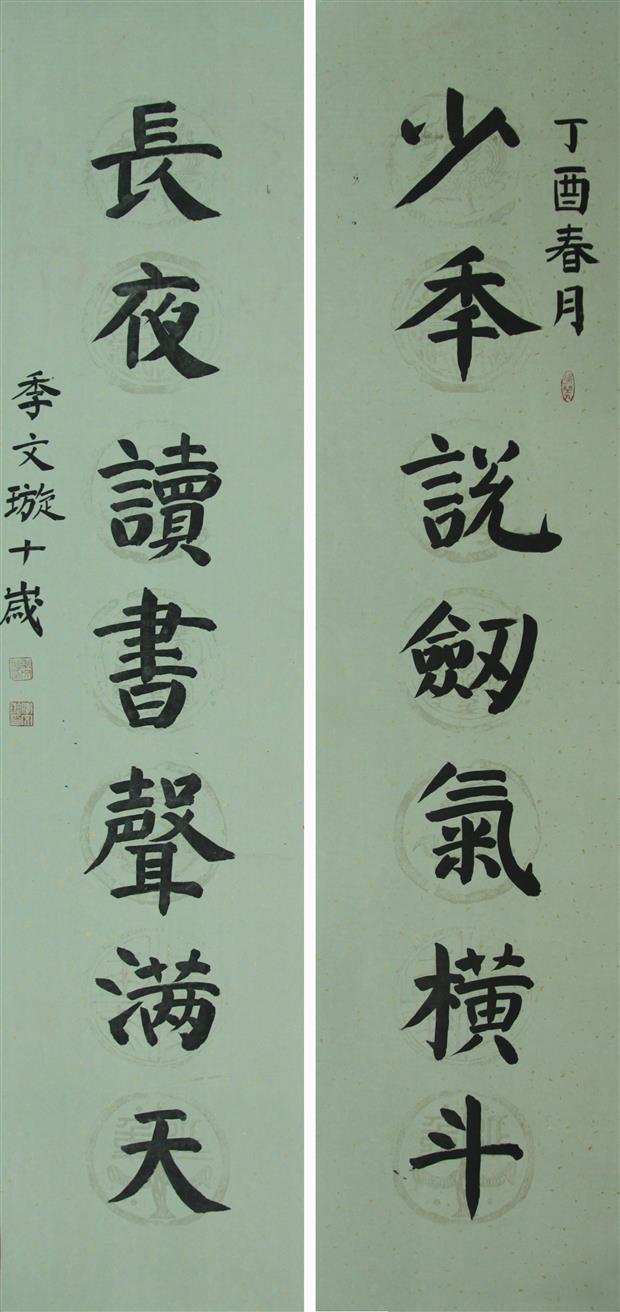 丁酉春月
少秊説劒氣橫斗
長夜讀書聲满天
季文璇十歲